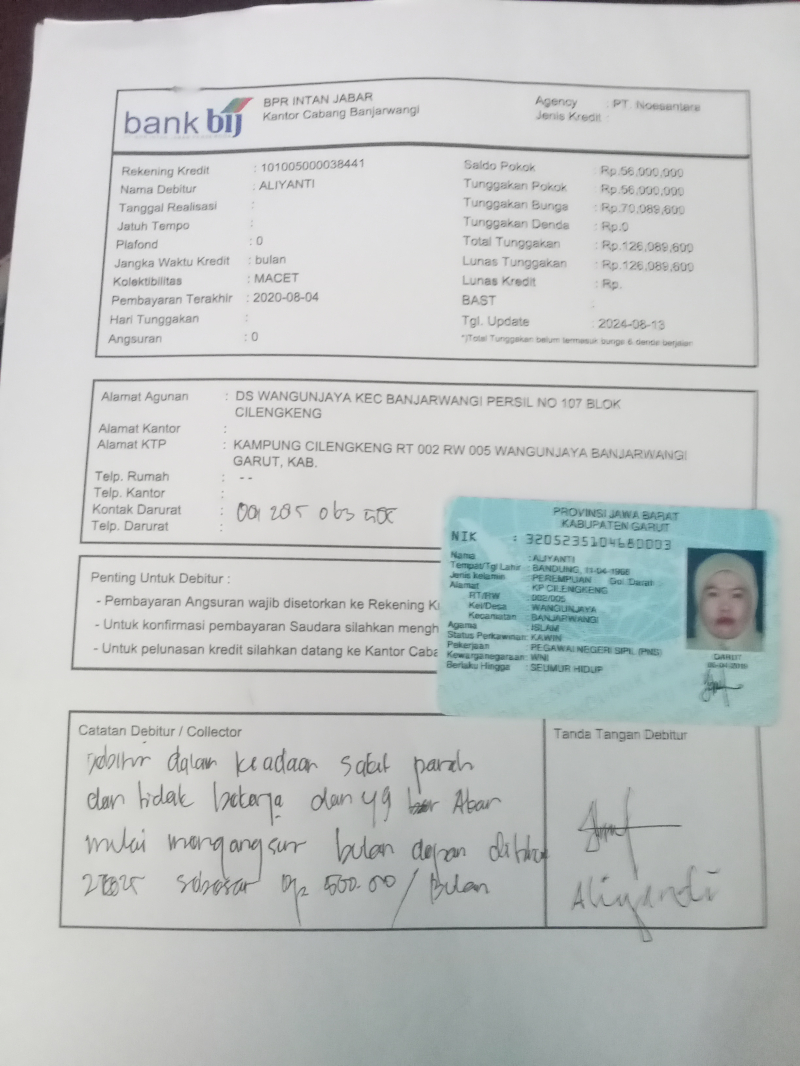 bank bij
BPR INTAN JABAR
Kantor Cabang Banjarwangi
Agency : PT. Noesantara
Jenis Kredit :
Rekening Kredit : 101005000038441
Nama Debitur : ALIYANTI
Tanggal Realisasi :
Jatuh Tempo :
Plafond : 0
Jangka Waktu Kredit : bulan
Kolektibilitas : MACET
Pembayaran Terakhir : 2020-08-04
Hari Tunggakan :
Angsuran : 0
Saldo Pokok : Rp.56,000,000
Tunggakan Pokok : Rp.56,000,000
Tunggakan Bunga : Rp.70,089,600
Tunggakan Denda : Rp.0
Total Tunggakan : Rp.126,089,600
Lunas Tunggakan : Rp.126,089,600
Lunas Kredit : Rp.
BAST :
Tgl. Update : 2024-08-13
*)Total Tunggakan belum termasuk bunga & denda berjalan
Alamat Agunan : DS WANGUNJAYA KEC BANJARWANGI PERSIL NO 107 BLOK
CILENGKENG
Alamat Kantor :
Alamat KTP : KAMPUNG CILENGKENG RT 002 RW 005 WANGUNJAYA BANJARWANGI
GARUT, KAB.
Telp. Rumah : --
Telp. Kantor :
Kontak Darurat :
Telp. Darurat :
PROVINSI JAWA BARAT
KABUPATEN GARUT
NIK : 3205235104680003
Nama : ALIYANTI
Tempat/Tgl Lahir : BANDUNG, 11-04-1968
Jenis kelamin : PEREMPUAN Gol. Darah :
Alamat : KP CILENGKENG
RT/RW : 002/005
Kel/Desa : WANGUNJAYA
Kecamatan : BANJARWANGI
Agama : ISLAM
Status Perkawinan: KAWIN
Pekerjaan : PEGAWAI NEGERI SIPIL (PNS)
Kewarganegaraan: WNI
Berlaku Hingga : SEUMUR HIDUP
GARUT
Penting Untuk Debitur :
- Pembayaran Angsuran wajib disetorkan ke Rekening
- Untuk konfirmasi pembayaran Saudara silahkan
- Untuk pelunasan kredit silahkan datang ke Kantor
Catatan Debitur / Collector
Debitur dalam keadaan sakit parah
dan tidak bekerja dan yg Akan
mulai mengangsur bulan depan
sebesar Rp 500.00/Bulan
Tanda Tangan Debitur
Aliyanti